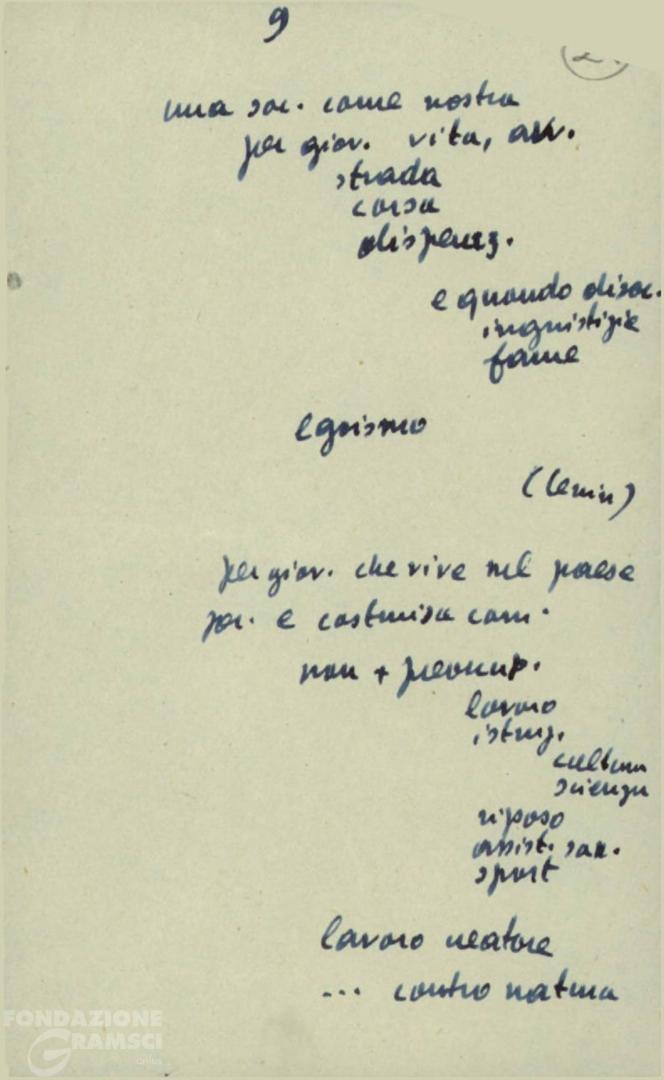 9
2.
una soc. come nostra
per giov. vita, avv.
strada
corsa
disperaz.
e quando disoc.
ingiustizie
fame
egoismo
(Lenin)
per giov. che vive nel paese
soc. e costruisce com.
non + preoccup.
lavoro
istruz.
cultura
scienza
riposo
assist. san.
sport
lavoro creatore
... contro natura
FONDAZIONE
GRAMSCI
Onlus